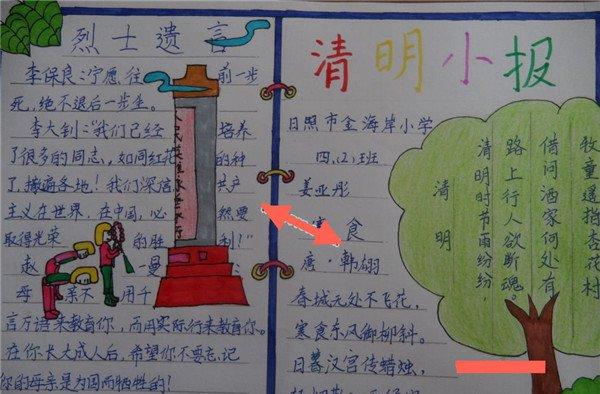 烈士遗言
李保良:宁愿往前一步
死,绝不退后一步生。
李大钊:"我们已经培养
了很多的同志,如同红花的种
了,撒遍各地!我们深信共产
主义在世界、在中国,必然要
取得光荣的胜利!"
赵一曼
母亲不用千
言万语来教育你,而用实际行来教育你。
在你长大成人后,希望你不要忘记
你的母亲是为国而牺牲的!
人民英雄永垂不朽
清明小报
日照市金海岸小学
四.(2)班
姜亚彤
寒食
唐·韩翃
春城无处不飞花,
寒食东风御柳斜。
日暮汉宫传蜡烛,
清明
清明时节雨纷纷,
路上行人欲断魂。
借问酒家何处有
牧童遥指杏花村